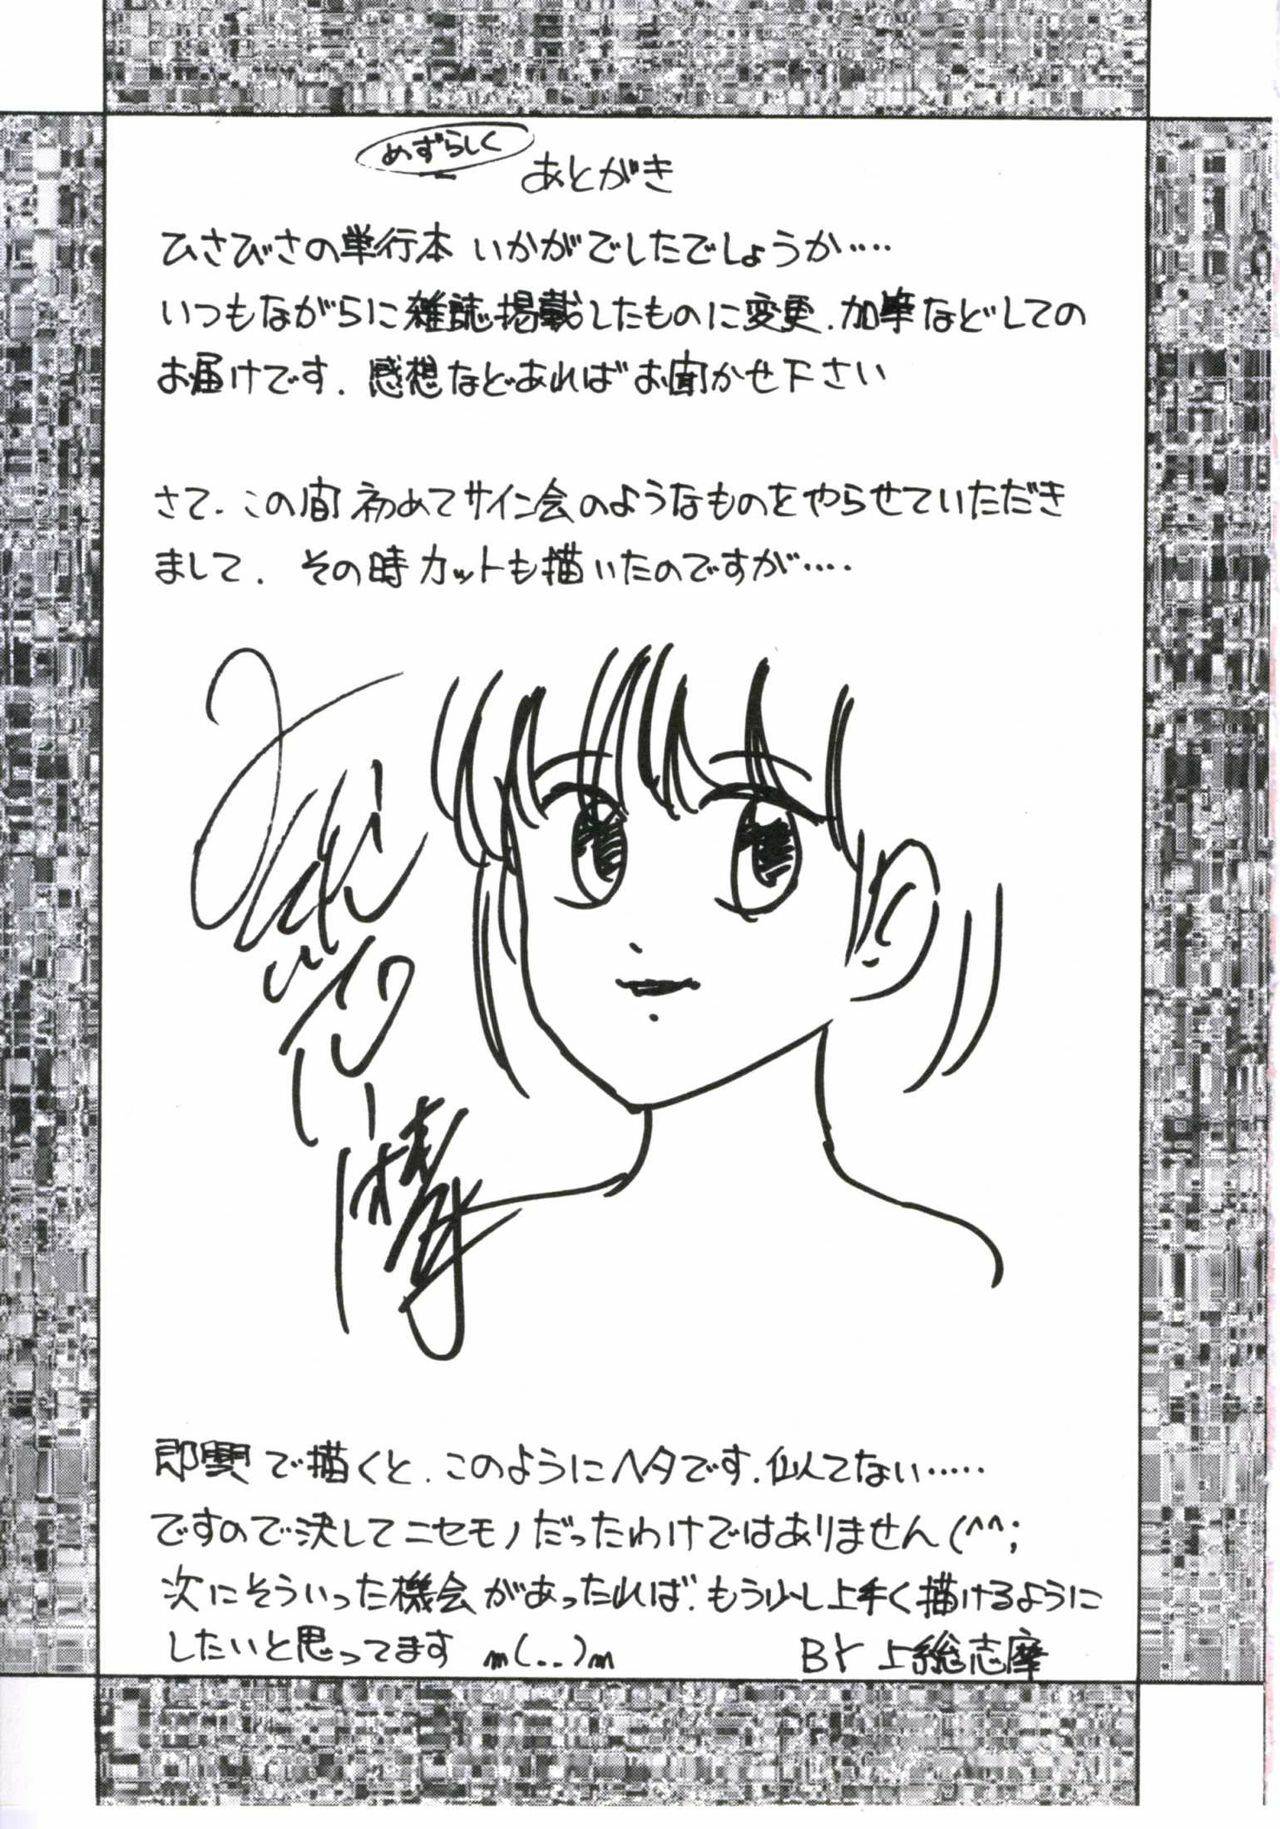 めずらしく
あとがき
ひさびさの単行本 いかがでしたでしょうか‥‥
いつもながらに雑誌掲載したものに変更、加筆などしての
お届けです. 感想などあればお聞かせ下さい
さて、この間初めてサイン会のようなものをやらせていただき
まして、その時カットも描いたのですが‥‥
即興で描くと、このようにヘタです、似てない‥‥‥
ですので決してニセモノだったわけではありません(^^;
次にそういった機会があったれば、もう少し上手く描けるように
したいと思ってます m(..)m
BY 上総志摩